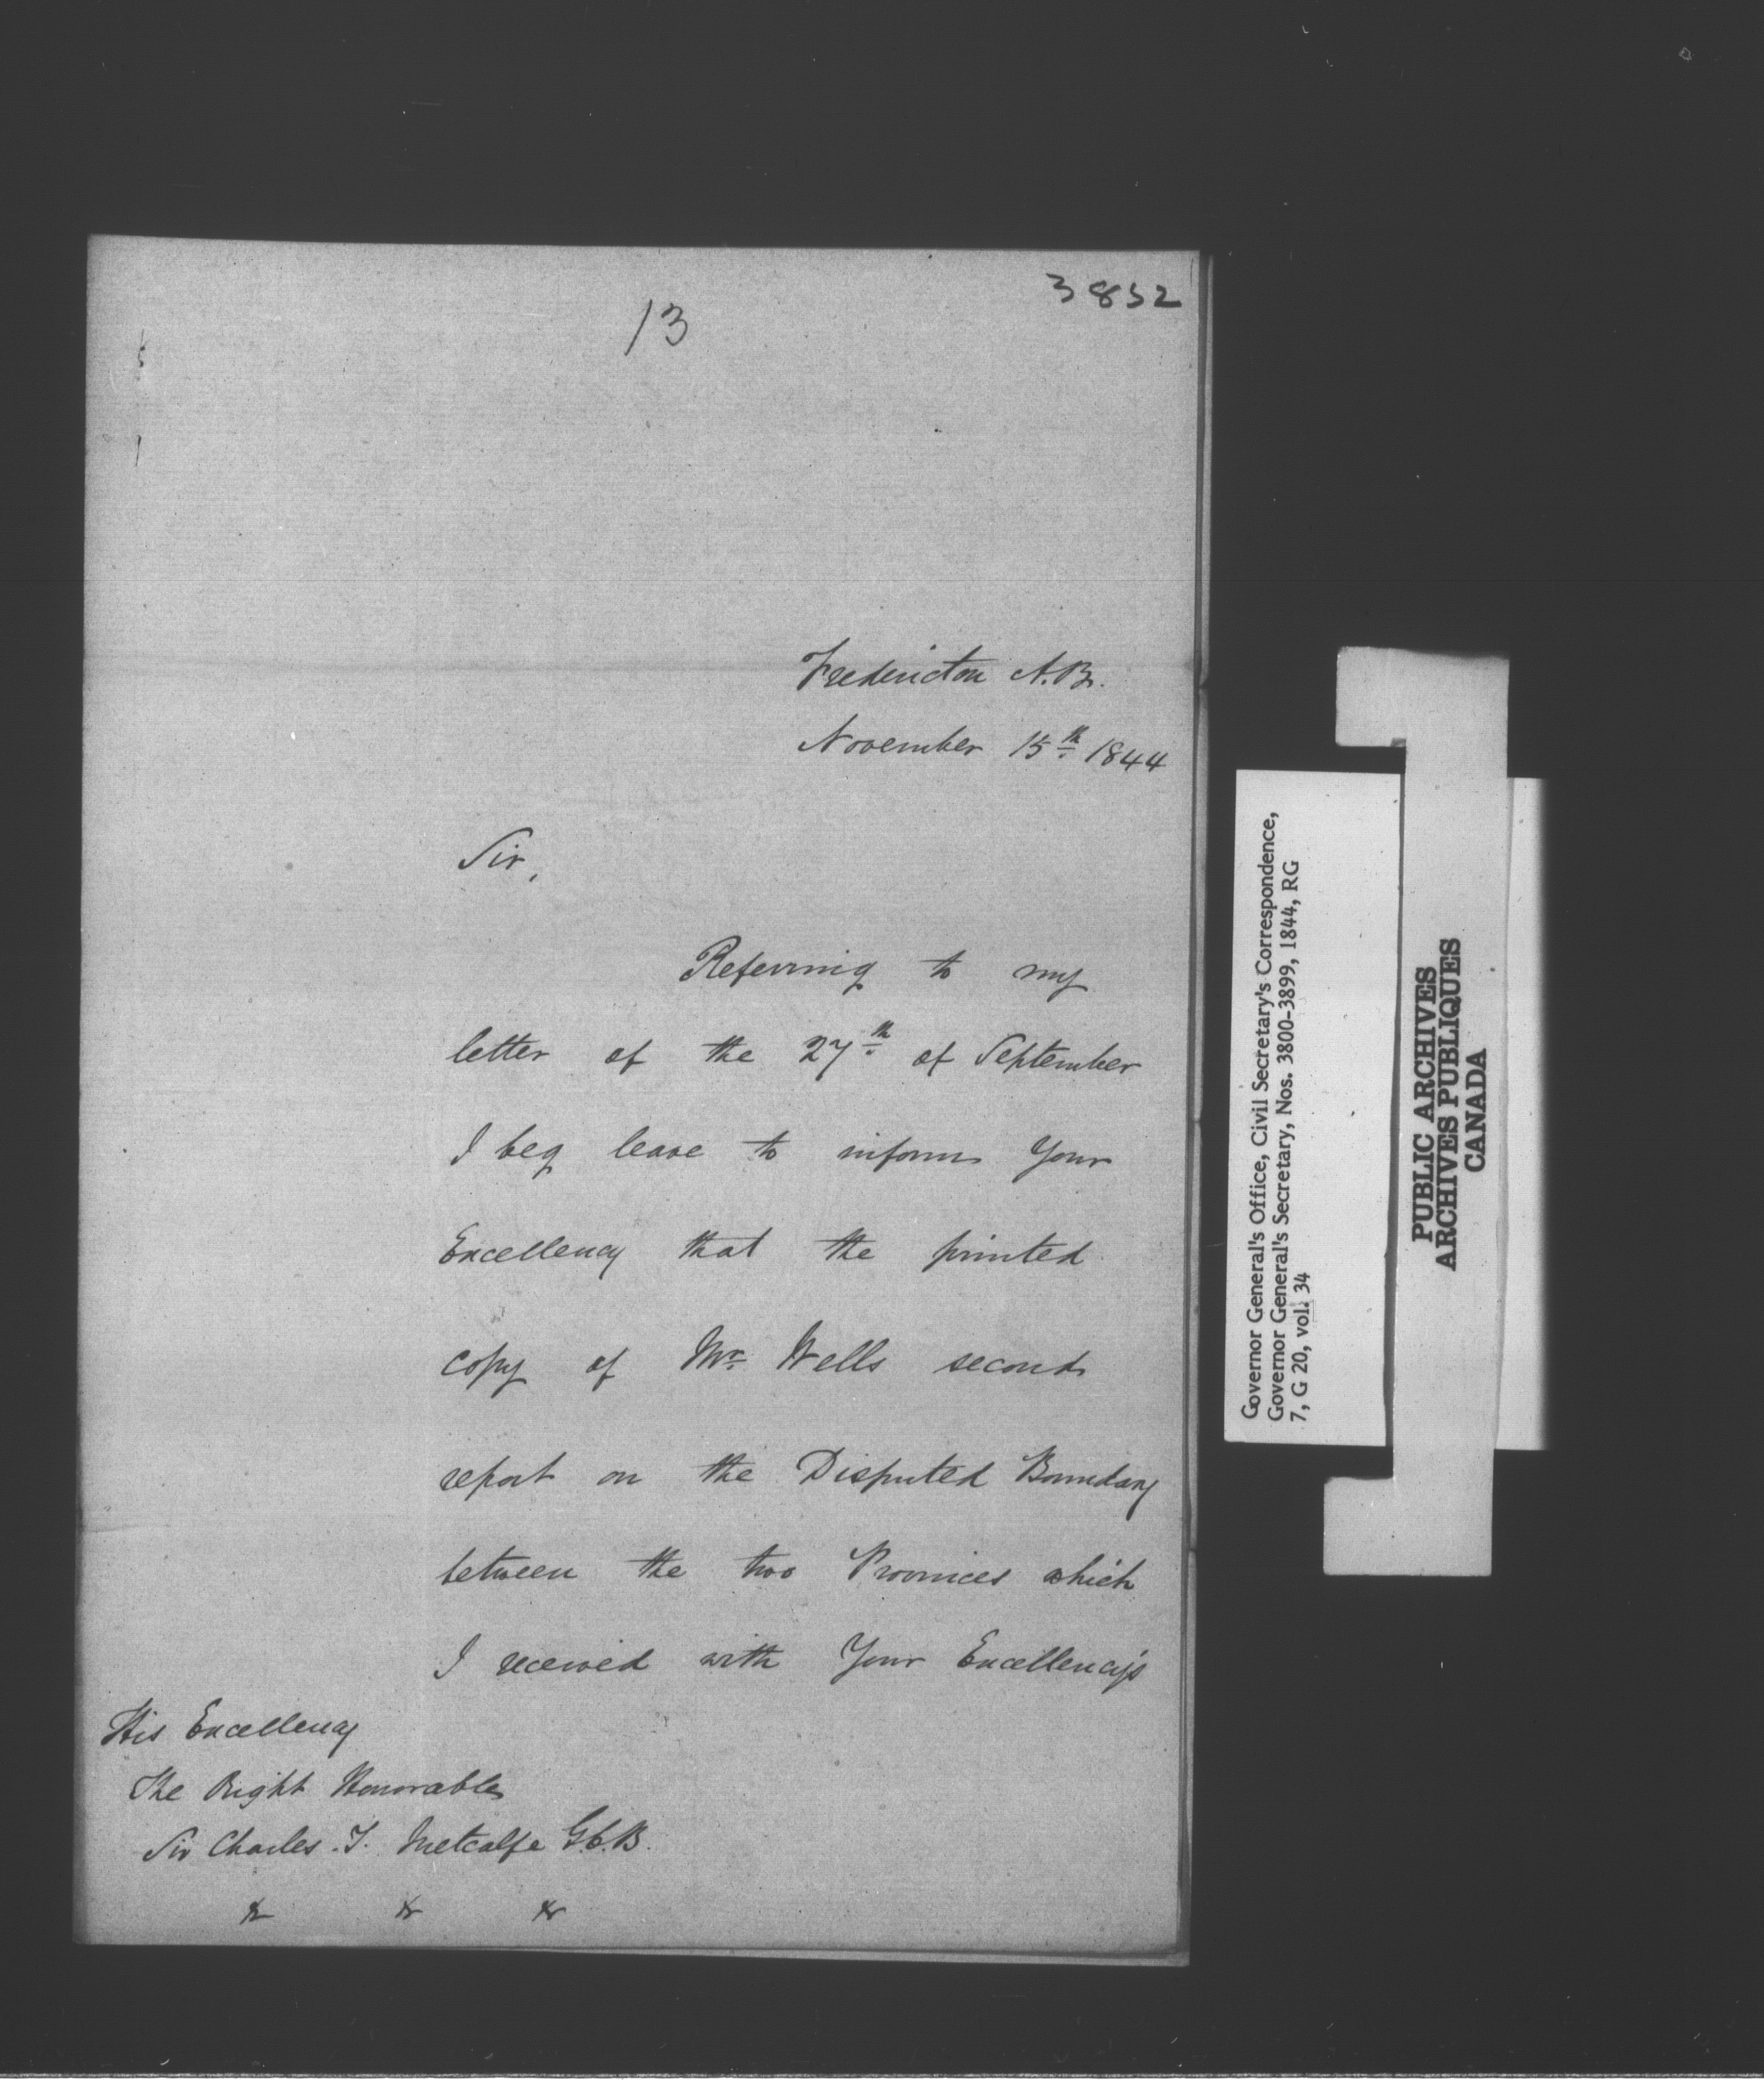 3832
13
Fredericton N.B.
November 15th 1844
Sir,
Referring to my
letter of the 27th of September
I beg leave to inform Your
Excellency that the printed
copy of Mr. Wells second
report on the Disputed Boundary
between the two Provinces which
I received with Your Excellency's
His Excellency
The Right Honorable
Sir Charles. T. Metcalfe G.C.B.
&c &c &c
Governor General's Office, Civil Secretary's Correspondence,
Governor General's Secretary, Nos. 3800-3899, 1844, RG
7, G 20, vol. 34
PUBLIC ARCHIVES
ARCHIVES PUBLIQUES
CANADA